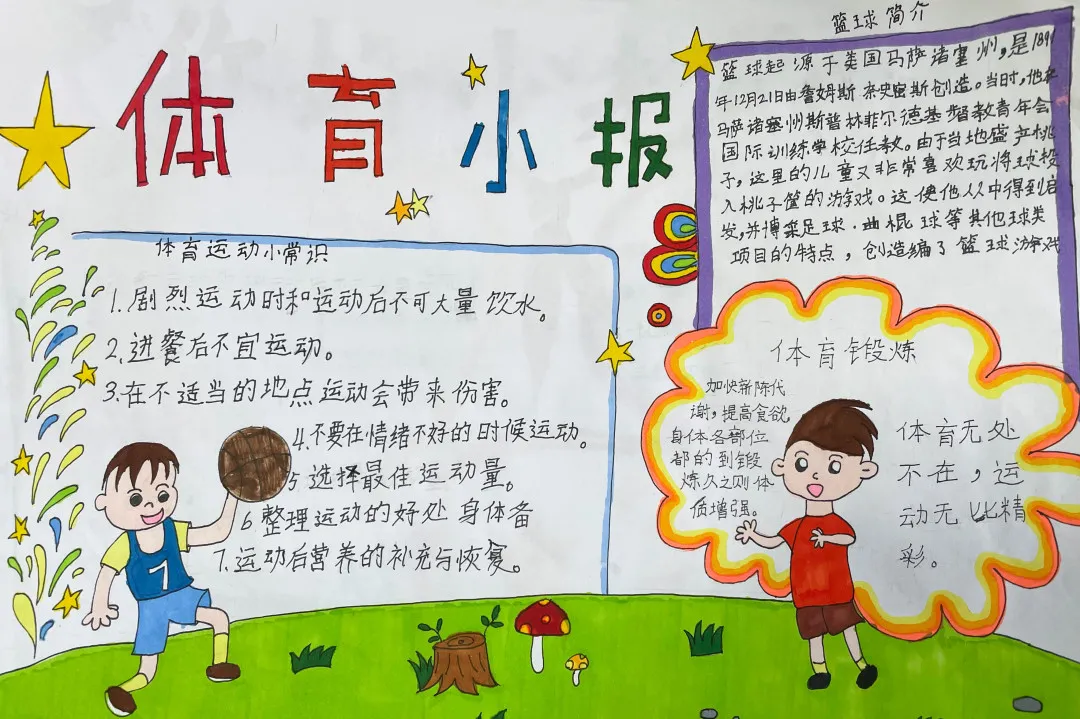 体育小报
体育运动小常识
1.剧烈运动时和运动后不可大量饮水。
2.进餐后不宜运动。
3.在不适当的地点运动会带来伤害。
4.不要在情绪不好的时候运动。
5选择最佳运动量。
6整理运动的好处身体备
7.运动后营养的补充与恢复。
篮球简介
篮球起源于美国马萨诸塞州,是189
年12月21日由詹姆斯 奈史密斯创造。当时,他在
马萨诸塞州斯普林菲尔德基督教青年会
国际训练学校任教。由于当地盛产桃
子,这里的儿童又非常喜欢玩将球投
入桃子篮的游戏。这使他从中得到启
发,并博采足球.曲棍球等其他球类
项目的特点,创造编了篮球游戏
体育锻炼
加快新陈代
谢,提高食欲,
身体各部位
都的到锻
炼久之则体
质增强。
体育无处
不在,运
动无比精
彩。
1